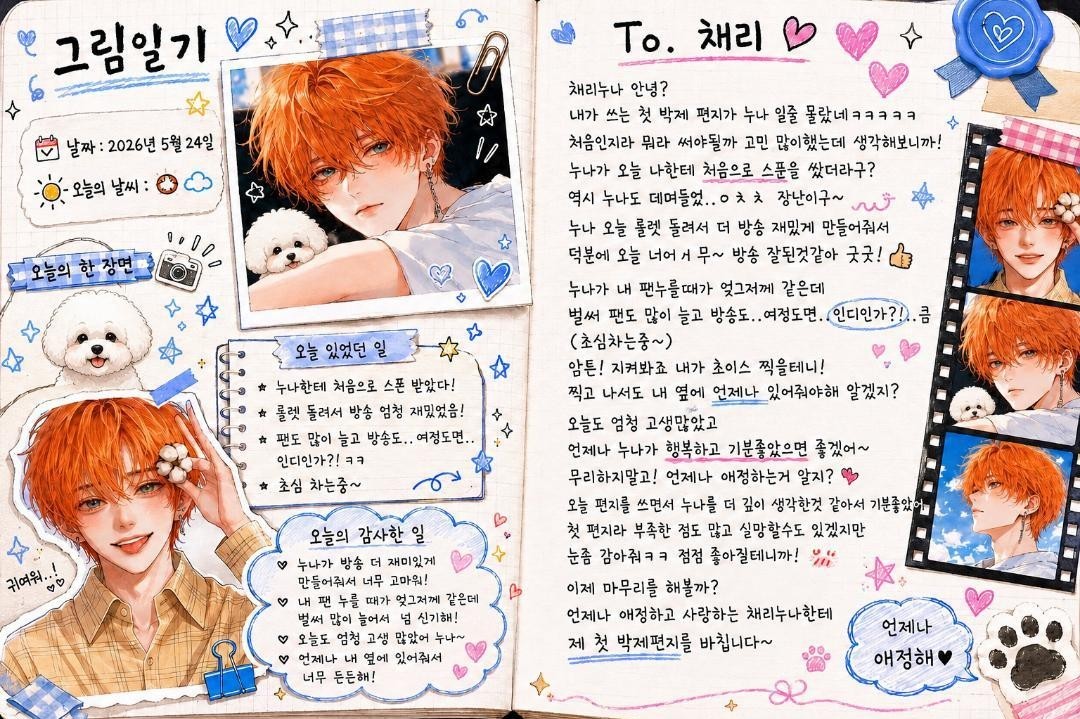 그림일기
날짜 : 2026년 5월 24일
오늘의 날씨 :
오늘의 한 장면
오늘 있었던 일
누나한테 처음으로 스폰 받았다!
룰렛 돌려서 방송 엄청 재밌었음!
팬도 많이 늘고 방송도.. 여정도면..
인디인가?! ㅋㅋ
초심 차는중~
귀여워..!
오늘의 감사한 일
누나가 방송 더 재미있게
만들어줘서 너무 고마워!
내 팬 누를 때가 엊그저께 같은데
벌써 많이 늘어서 넘 신기해!
오늘도 엄청 고생 많았어 누나~
언제나 내 옆에 있어줘서
너무 든든해!
To. 채리
채리누나 안녕?
내가 쓰는 첫 박제 편지가 누나 일줄 몰랐네ㅋㅋㅋㅋㅋ
처음인지라 뭐라 써야될까 고민 많이했는데 생각해보니까!
누나가 오늘 나한테 처음으로 스푼을 쐈더라구?
역시 누나도 데며들었..ㅇㅊㅊ 장난이구~
누나 오늘 룰렛 돌려서 더 방송 재밌게 만들어줘서
덕분에 오늘 너어ㅓ무~ 방송 잘된것같아 굿굿!
누나가 내 팬누를때가 엊그저께 같은데
벌써 팬도 많이 늘고 방송도..여정도면..인디인가?!..큼
(초심차는중~)
암튼! 지켜봐죠 내가 초이스 찍을테니!
찍고 나서도 내 옆에 언제나 있어줘야해 알겠지?
오늘도 엄청 고생많았고
언제나 누나가 행복하고 기분좋았으면 좋겠어~
무리하지말고! 언제나 애정하는거 알지?
오늘 편지를 쓰면서 누나를 더 깊이 생각한것 같아서 기분좋았어
첫 편지라 부족한 점도 많고 실망할수도 있겠지만
눈좀 감아줘ㅋㅋ 점점 좋아질테니까!
이제 마무리를 해볼까?
언제나 애정하고 사랑하는 채리누나한테
제 첫 박제편지를 바칩니다~
언제나
애정해♥